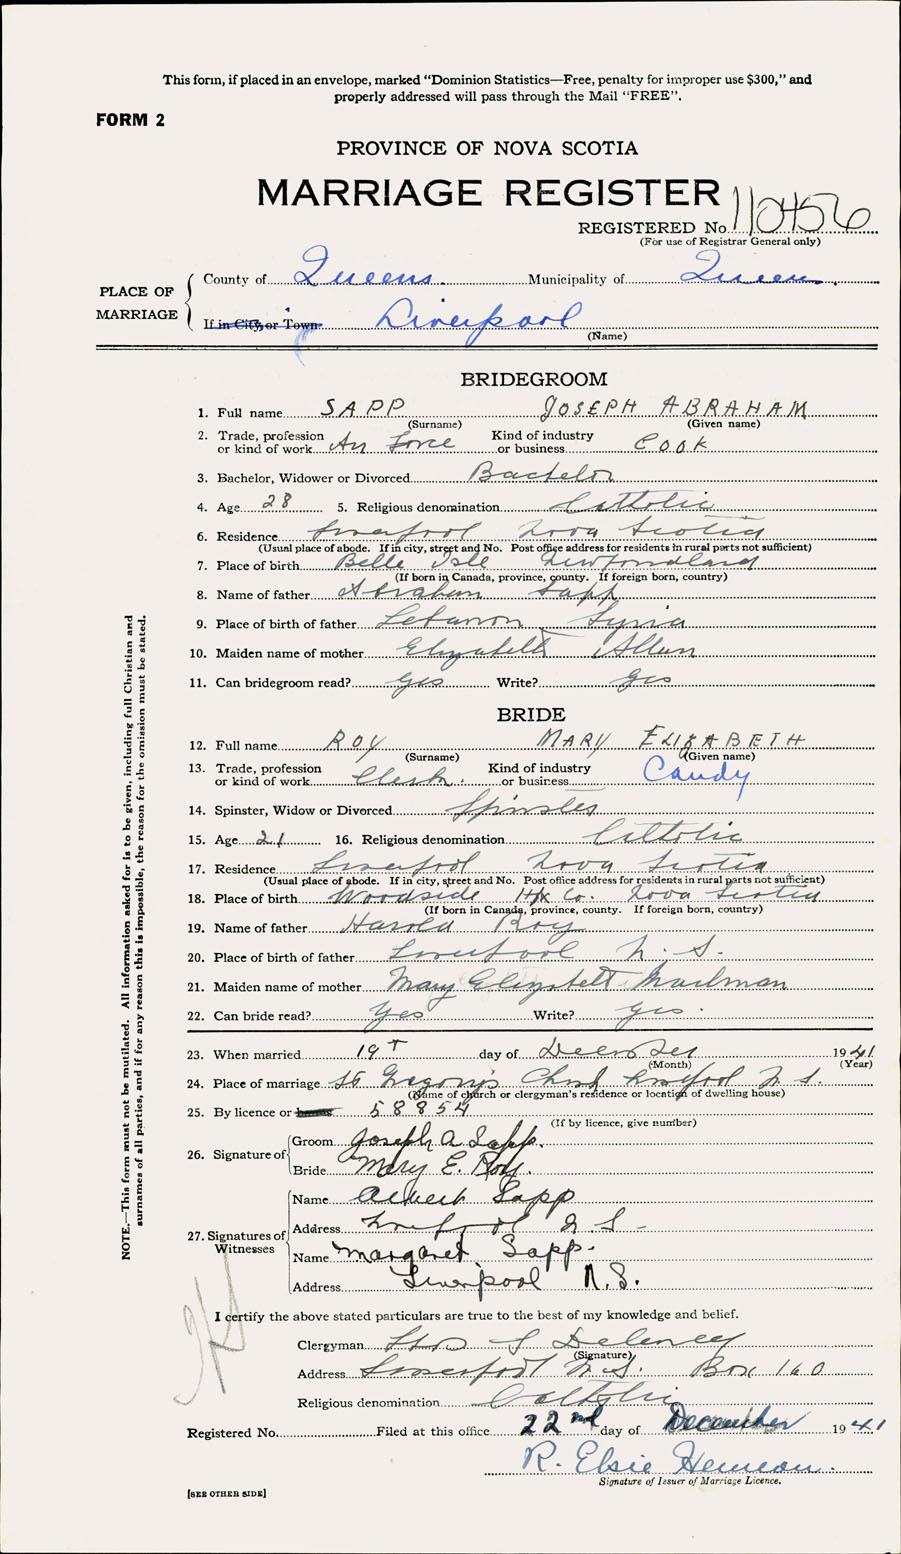 This form, if placed in an envelope, marked "Dominion Statistics—Free, penalty for improper use $300," and
properly addressed will pass through the Mail "FREE".
FORM 2
PROVINCE OF NOVA SCOTIA
MARRIAGE REGISTER
REGISTERED No. 110456
(For use of Registrar General only)
PLACE OF MARRIAGE
County of Queens. Municipality of Queens.
If in City or Town Liverpool
(Name)
BRIDEGROOM
1. Full name SAPP JOSEPH ABRAHAM
(Surname) (Given name)
2. Trade, profession or kind of work Air Force Kind of industry or business COOK
3. Bachelor, Widower or Divorced Bachelor
4. Age 28 5. Religious denomination Catholic
6. Residence Liverpool Nova Scotia
(Usual place of abode. If in city, street and No. Post office address for residents in rural parts not sufficient)
7. Place of birth Belle Isle Newfoundland
(If born in Canada, province, county. If foreign born, country)
8. Name of father Abraham Sapp
9. Place of birth of father Lebanon, Syria
10. Maiden name of mother Elizabeth Allen
11. Can bridegroom read? yes Write? yes
BRIDE
12. Full name ROY MARY ELIZABETH
(Surname) (Given name)
13. Trade, profession or kind of work Clerk. Kind of industry or business Candy
14. Spinster, Widow or Divorced Spinster
15. Age 21 16. Religious denomination Catholic
17. Residence Liverpool Nova Scotia
(Usual place of abode. If in city, street and No. Post office address for residents in rural parts not sufficient)
18. Place of birth Woodside Hfx Co. Nova Scotia
(If born in Canada, province, county. If foreign born, country)
19. Name of father Harold Roy
20. Place of birth of father Liverpool N. S.
21. Maiden name of mother Mary Elizabeth Mailman
22. Can bride read? Yes Write? yes.
23. When married 19th day of December 1941
(Month) (Year)
24. Place of marriage St Gregory's Church Liverpool N. S.
(Name of church or clergyman's residence or location of dwelling house)
25. By licence or banns 58854
(If by licence, give number)
26. Signature of
Groom Joseph A Sapp.
Bride Mary E. Roy.
27. Signatures of Witnesses
Name Albert Sapp
Address Liverpool N. S.
Name Margaret Sapp.
Address Liverpool N.S.
I certify the above stated particulars are true to the best of my knowledge and belief.
Clergyman Delaney
(Signature)
Address Liverpool N. S. Box 160
Religious denomination Catholic
Registered No. Filed at this office 22nd day of December 1941
R. Elsie Hemeon.
Signature of Issuer of Marriage Licence.
[SEE OTHER SIDE]
NOTE.—This form must not be mutilated. All information asked for is to be given, including full Christian and
surnames of all parties, and if for any reason this is impossible, the reason for the omission must be stated.